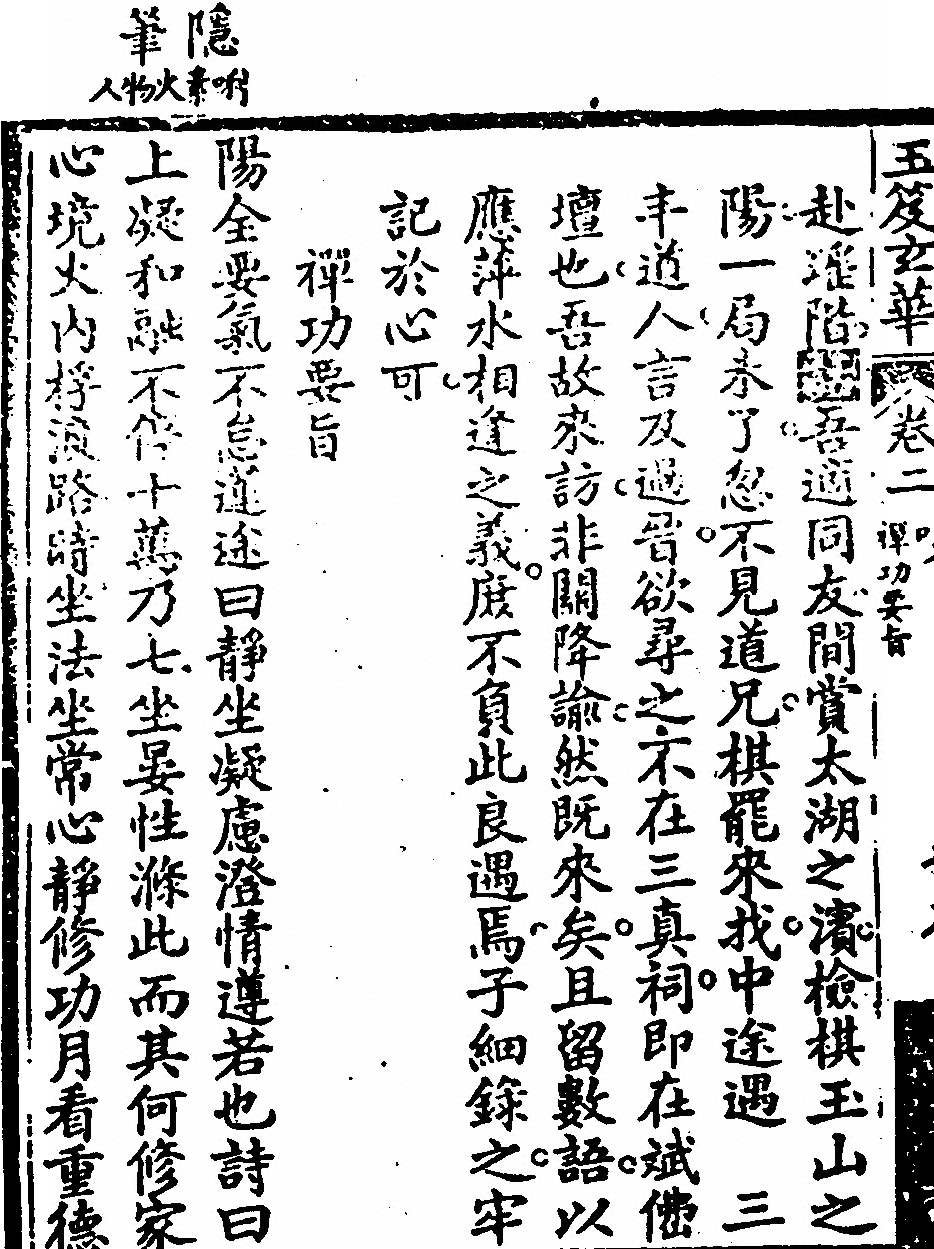 隱筆
喇素火物人
玉笈玄華 卷二 禪功要旨
赴瑤階 吾適同友間賞太湖之濱檢棋玉山之
陽一局未了忽不見道兄棋罷來找中途遇 三
丰道人言及過晉欲尋之不在三真祠即在斌儓
壇也吾故來訪非關降諭然既來矣且留數語以
應萍水相逢之義庶不負此良遇焉子細錄之牢
記於心可
禪功要旨
陽全要氣不怠蓮途曰靜坐凝慮澄情遵若也詩曰
上凝和融不停十萬乃七坐晏性滌此而其何修家
心境火內桴浪路時坐法坐常心靜修功月看重德